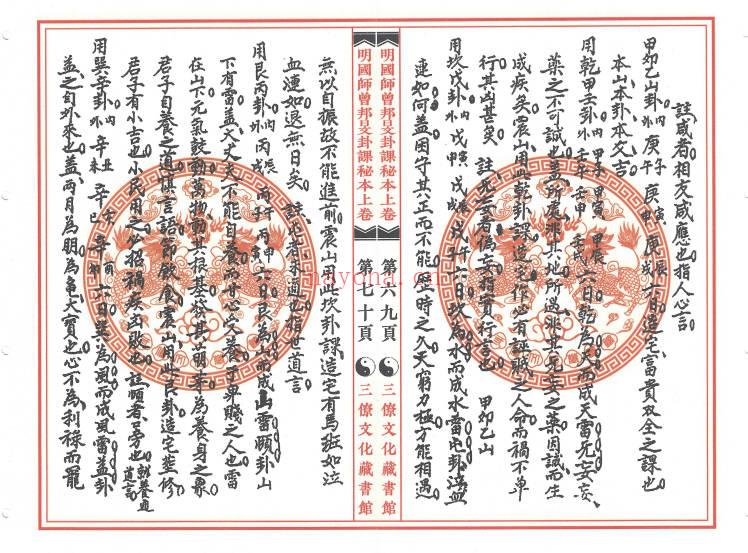 註咸者相友咸應也指人心言
甲卯乙山卦內外庚子庚寅庚辰六日造宅富貴双全之課也
本山本卦本爻言
用乾甲壬卦內外甲子甲寅甲辰壬午壬申壬戌六日乾為天而成天雷无妄妄
藥之不可試也蓋所處非其地所遇非其无妄之藥因誠而生
成疾矣震山用此乾卦課造宅作心有誣賊之人命而禍不单
行其凶甚矣 註无妄者偽妄指實行言也 甲卯乙山
用坎戊卦內外戊寅戊辰戊午戊申戊戌戊子六日坎為水而成水雷屯卦
連如何蓋困守其正而不能 時之久天窮力極方能相遇
明國師曾邦旻卦課秘本上卷 第六九頁 三僚文化藏書館
明國師曾邦旻卦課秘本上卷 第七十頁 三僚文化藏書館
無以自振故不能進前震山用此坎卦課造宅有馬班如泣
血漣如退無日矣 註屯者求道也指世道言
用艮丙卦內外丙辰丙午丙申丙戌丙子丙寅六日艮為山而成山雷頤卦山
下有雷蓋大丈夫不能自養而甘心又養于卑賤之人也雷
在山下元氣鼓動萬物動其根基發其萌芽為養身之象
君子自養之道慎言語節飲食震山用此艮卦造宅葬修
君子有小吉也小民用之必招禍疾凶敗也註頤者
用巽辛卦內外辛丑辛亥辛酉辛未辛巳辛卯六日巽為風而成風雷益卦
益之自外來也蓋兩月為朋為龜大寶也心不為利祿而罷
nayona.cn